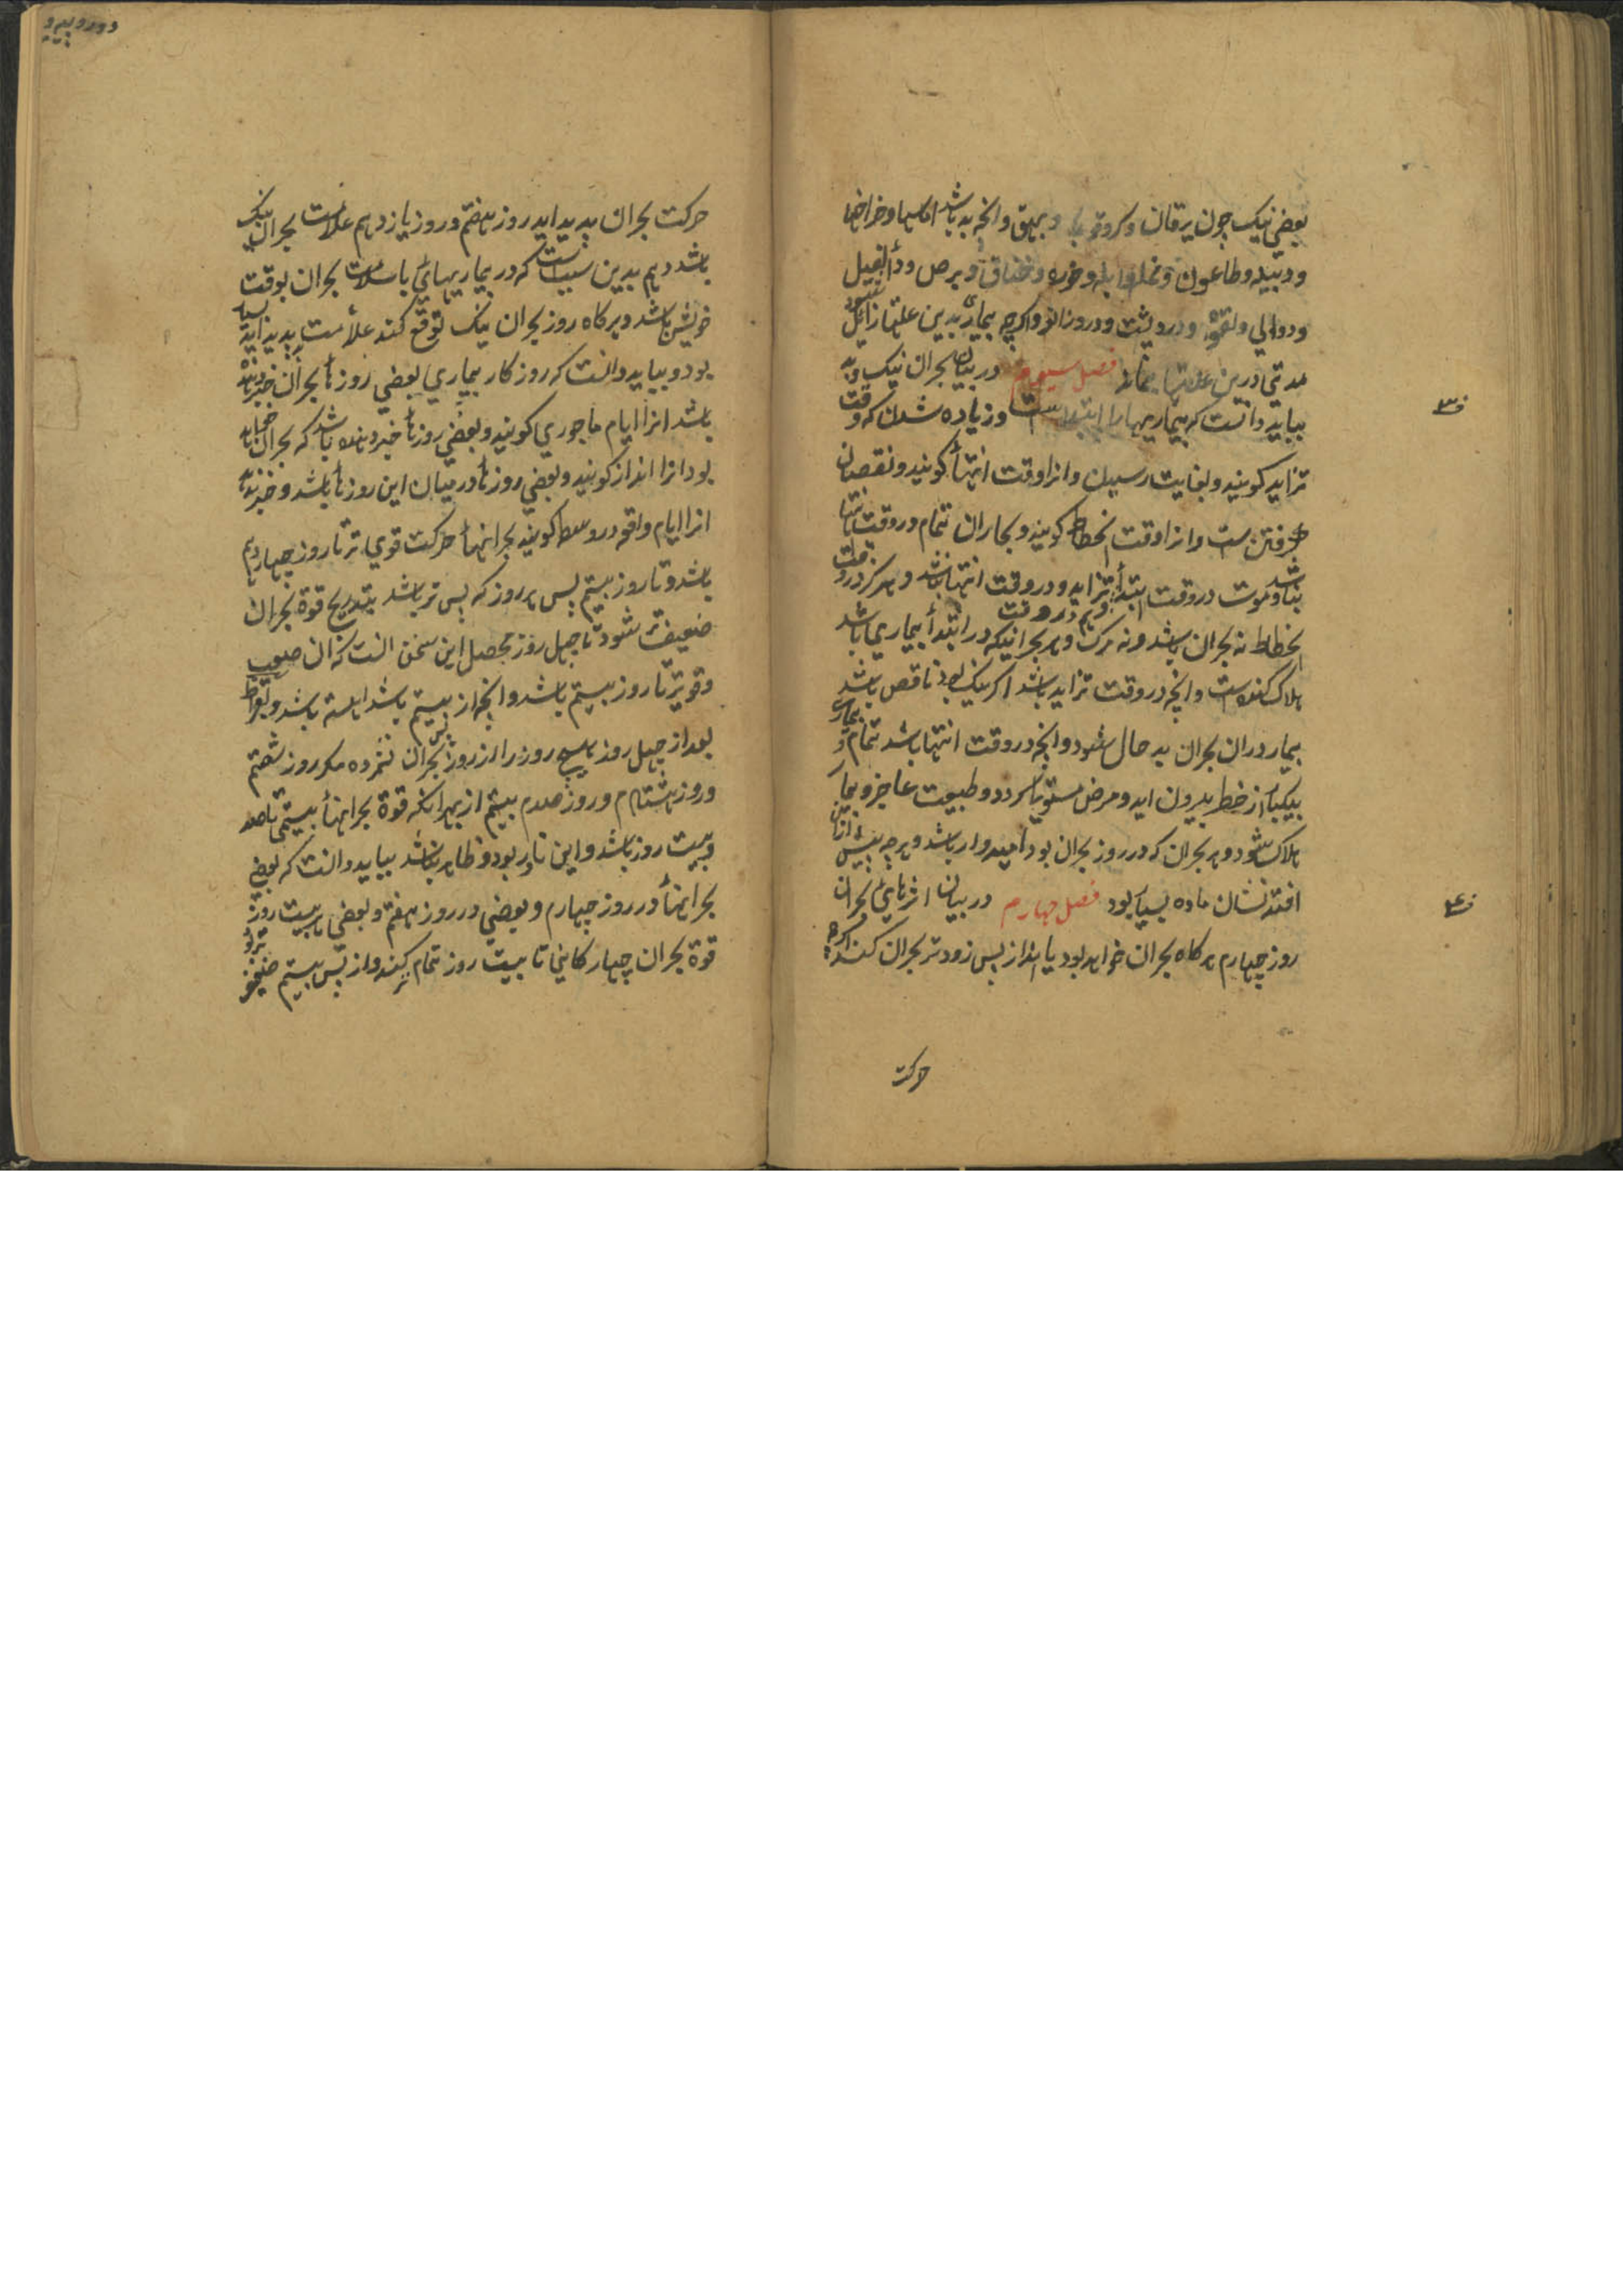 بعضي نيک چون يرقان و کر و قوبا و بهق و انچه بد باشد اماسها و خراجها
و دبيله و طاعون و نمله و ابله و خوره و خناق و برص و دأ الفيل
و دوالي و لقوه و درد پشت و درد زانو و اگرچه بيماري بدين علتها زائل شود
مدتي درين علتها بماند فصل سيوم در بيان بحران نيک و بد
ببايد دانست که بيماريها را ابتداست و زياده شدن که وقت
تزايد کويند و بغايت رسيدن و انرا وقت انتهأ کويند و نقصان
گرفتن ست و انرا وقت انحطاط کويند و بحاران تمام در وقت انتها
باشد و موت در وقت ابتدأ و هم در وقت تزايد و در وقت انتها باشد و هرگز در وقت
انحطاط نه بحران باشد و نه مرک و هر بحرانيکه در ابتدأ بيماري باشد
هلاک کننده است و انچه در وقت تزايد باشد اگر نيک بود ناقص باشد
بيمار دران بحران بد حال شود و انچه در وقت انتها باشد تمام و بيمار
بيکبار از خطر بيرون ايد و مرض مستولي گردد و طبيعت عاجز و بيمار
هلاک شود و هر بحران که در روز بحران بود اميدوار باشد و هرچه پيش ازان
افتد نشان ماده بسيار بود فصل چهارم در بيان اثرهاي بحران
روز چهارم هر کاه بحران خواهد بود يا انذار پس زودتر بحران کند اگرچه
حرکت
ف ۳
ف ۴
حرکت بحران پديد ايد روز هفتم و روز يازدهم علامت بحران نيک
باشد و هم بدين سبب است که در بيماريهاي با سلامت بحران بوقت
خويش باشد و هر کاه روز بحران نيک توقع کند علامت بد پديد ايد
بود و ببايد دانست که روزکار بيماري بعضي روزهأ بحران خبر دهنده
باشد انرا ايام باحوري کويند و بعضي روزهأ خبر دهنده باشد که بحران خواهد
بود انرا انذار کويند و بعضي روزهأ در ميان اين روزهأ باشد و خبر ندهد
انرا ايام واقعه در وسط کويند بحرانهأ حرکت قوي تر تا روز چهاردهم
باشد و تا روز بيستم پس هر روز که پس تر باشد بتدريج قوة بحران
ضعيف تر شود تا چهل روز محصل اين سخن انست که ان صعب
و قوي تر تا روز بيستم باشد و انچه از پس بيستم باشد اهسته باشد و بقراط
بعد از چهل روز هيچ روز را از روز بحران نشمرده مگر روز شصتم
و روز هشتادم و روز صدم بيستم از بهر انکه قوة بحرانهأ بيستمي تا صد
و بيست روز باشد و اين نادر بود و ظاهر نباشد ببايد دانست که بعضي
بحرانهأ در روز چهارم و بعضي در روز هفتم و بعضي در بيست روز
قوة بحران چهارکاني تا بيست روز تمام کنند و از پس بيستم ضعيف تر بود